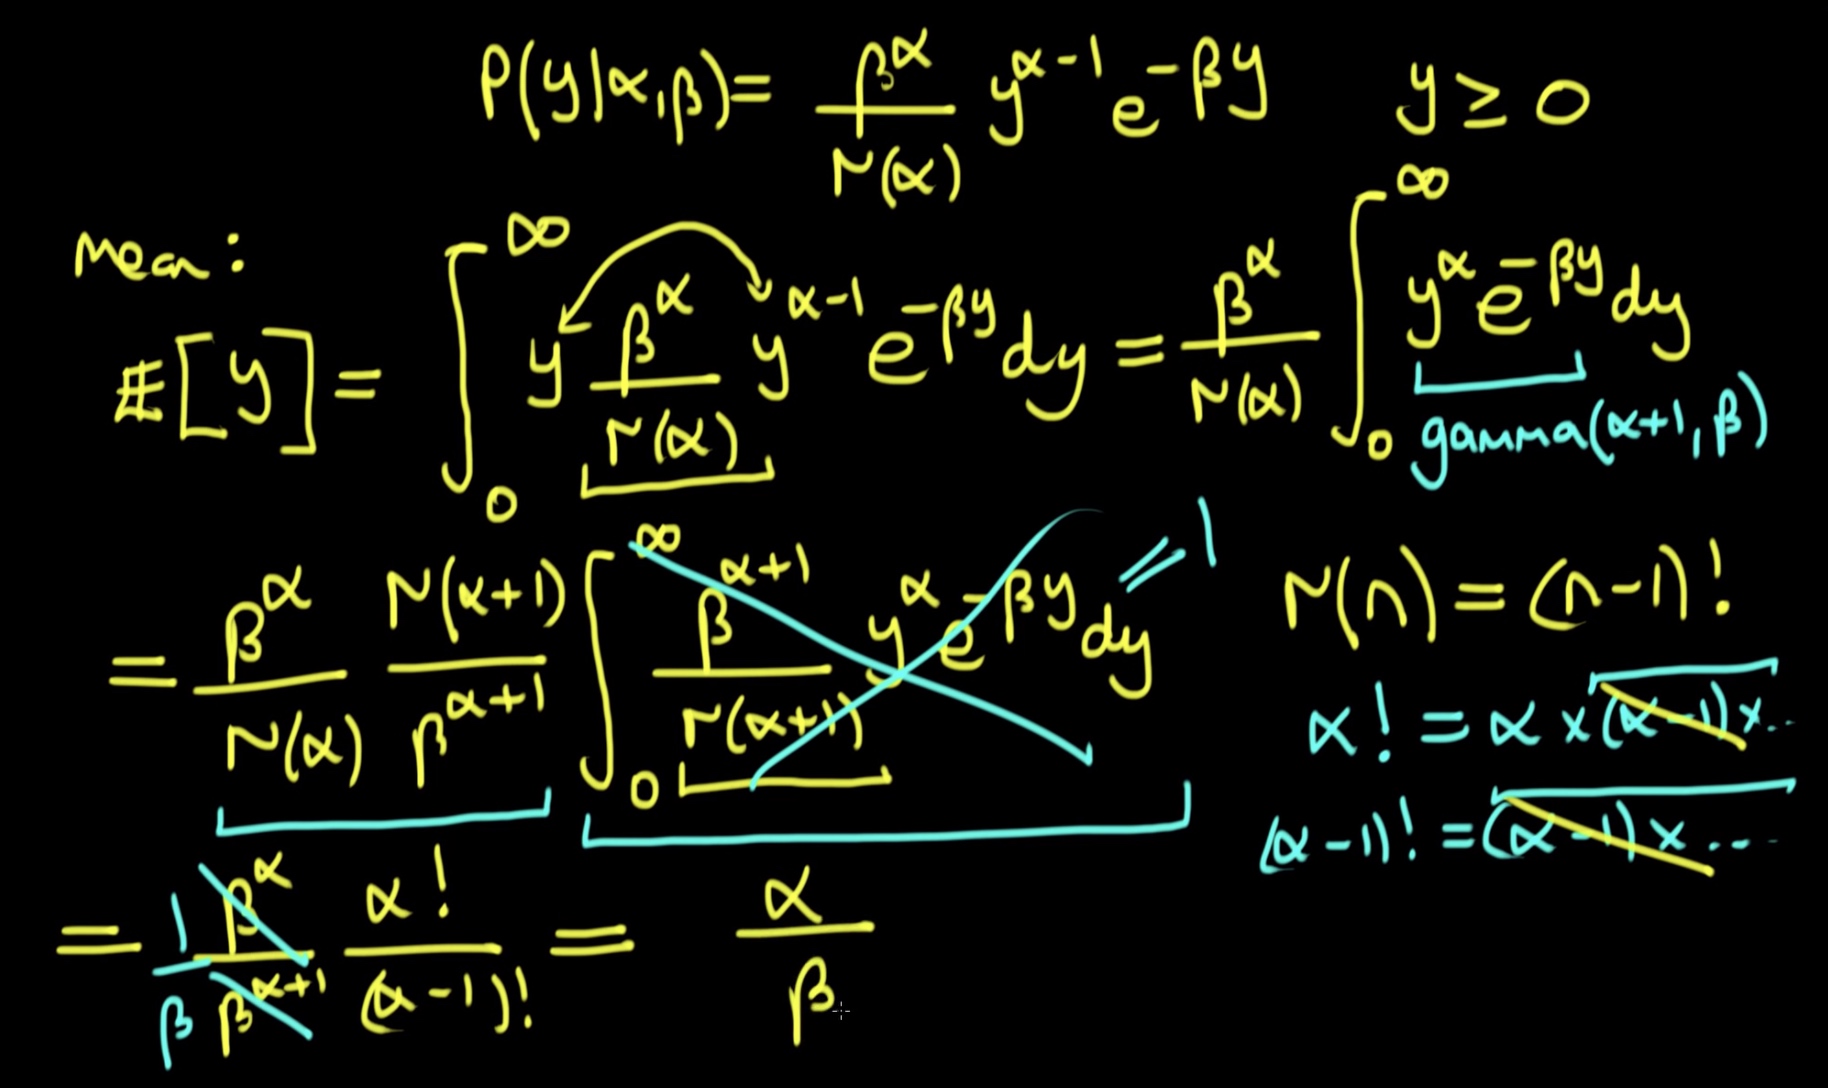 P(y|α,β) = β^α / Γ(α) y^(α-1) e^(-βy)   y ≥ 0
Mean:
E[y] = ∫_0^∞ y β^α / Γ(α) y^(α-1) e^(-βy) dy = β^α / Γ(α) ∫_0^∞ y^α e^(-βy) dy
gamma(α+1, β)
= β^α / Γ(α) Γ(α+1) / β^(α+1) ∫_0^∞ β^(α+1) / Γ(α+1) y^α e^(-βy) dy = 1
Γ(n) = (n-1)!
α! = α × (α-1) × ...
(α-1)! = (α-1) × ...
= 1/β β^α / β^(α+1) α! / (α-1)! = α / β